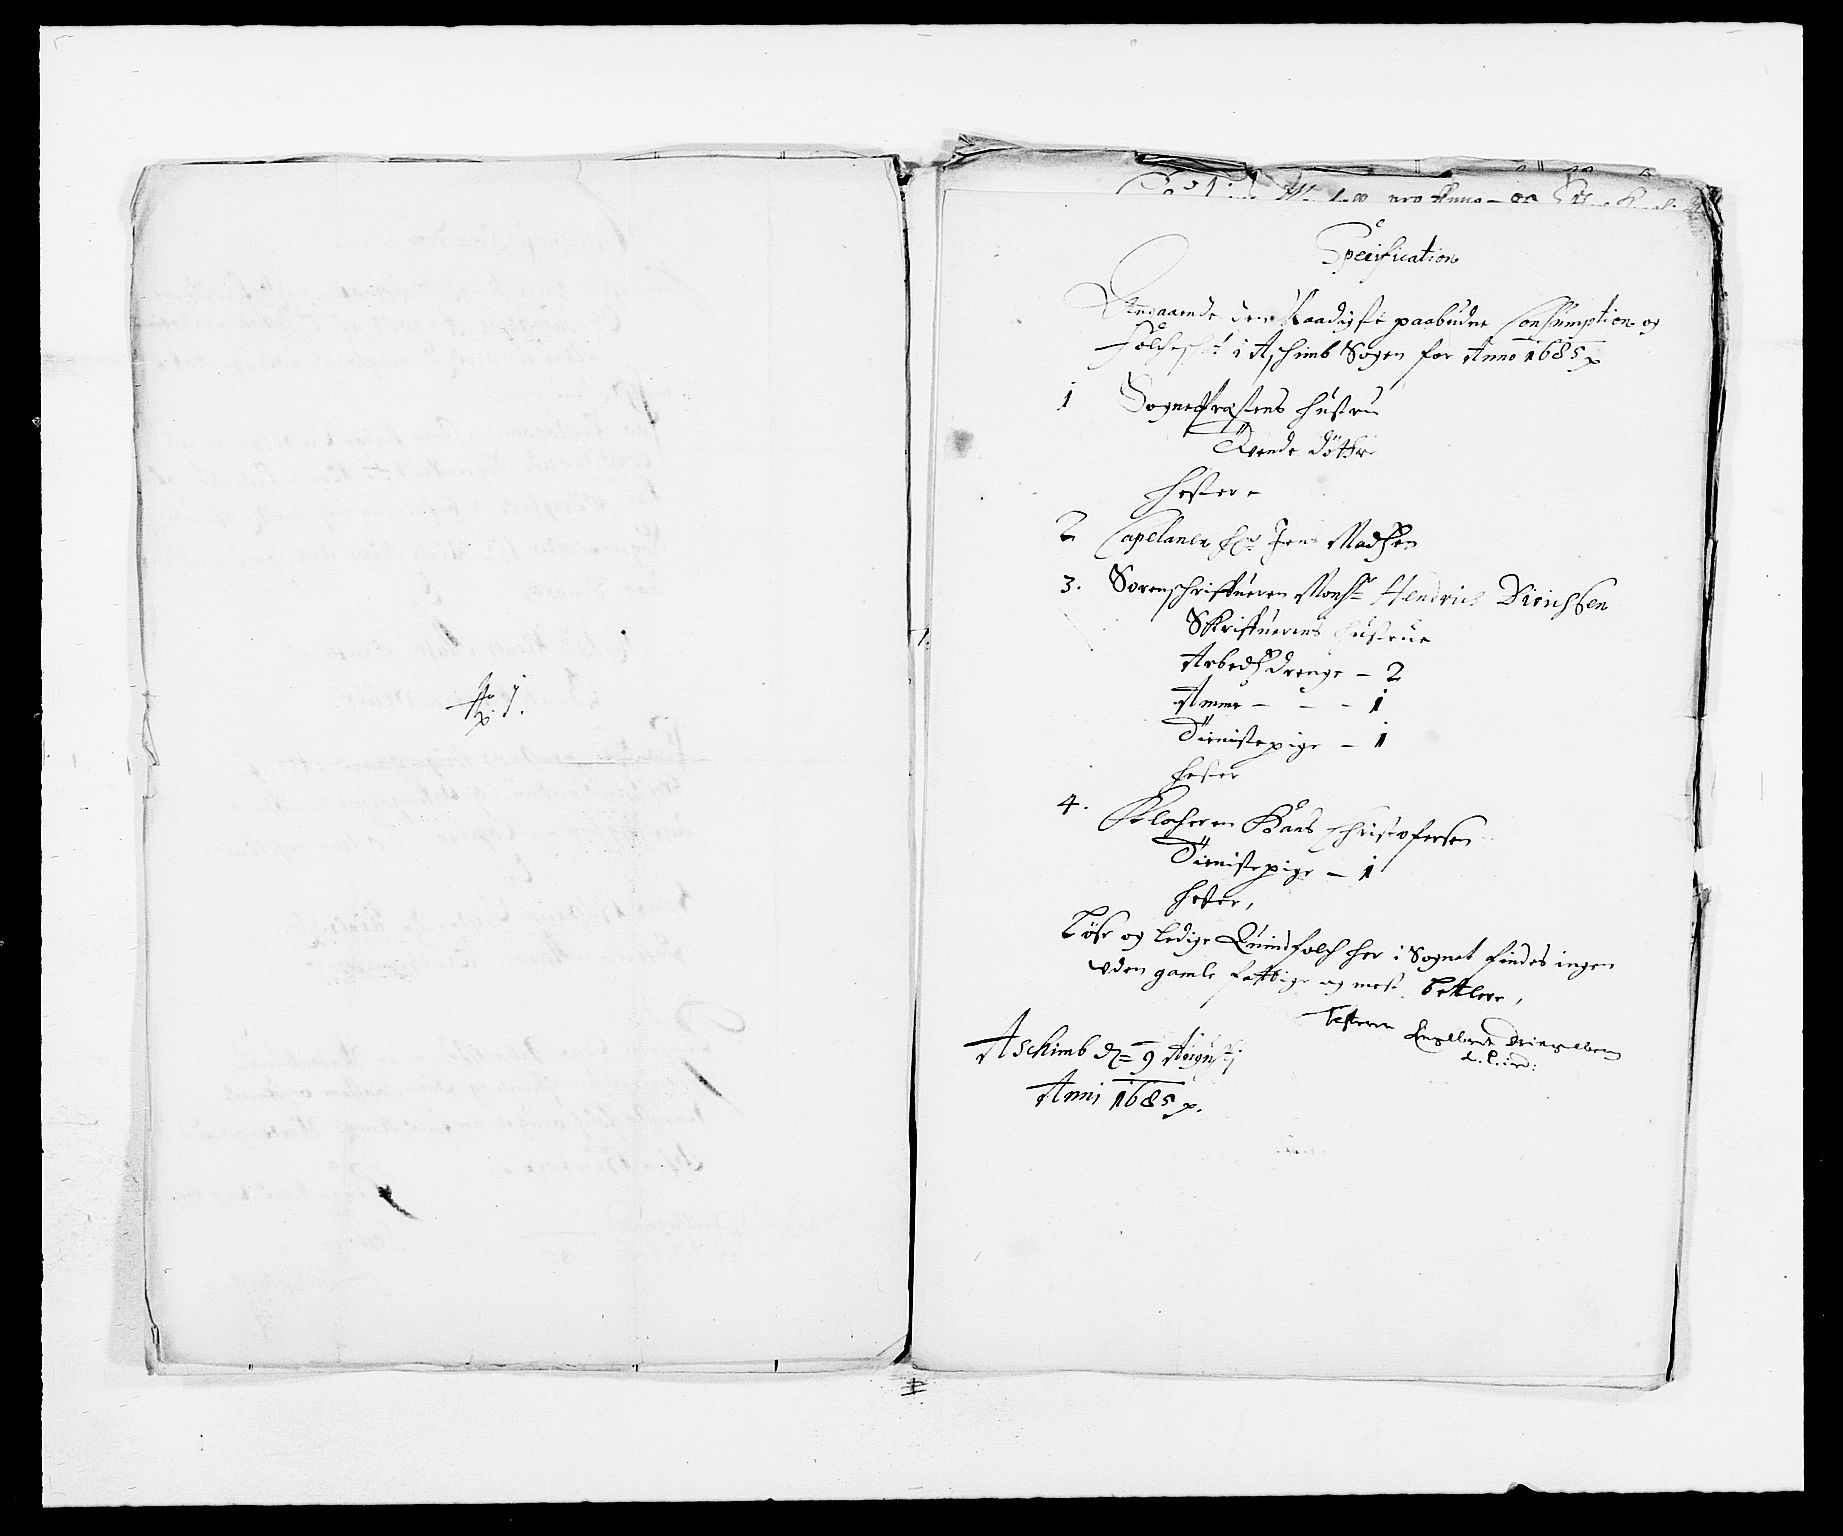 No 1.
Specification
Angaaende den Naadigste paabudne Consumption og
Folcheschat i Aschimb Sogen for Anno 1685 p
1 Sognepræstens hustru
Tvende døttre
hester
2 Capelanen Hr Jens Madsen
3. Sorenschriffueren Monsr Hendrich Dirichsen
Skriffuerens hustrue
Arbeds Drenge – 2
Amme – – – 1
Tienistepige – 1
hester
4. Klocheren Hans Christofersen
Tienistepige – 1
hester,
Løse og ledige Quindfolch her i Sognet findes ingen
vden gamle fattige og mest betlere,
Aschimb d. 9 Augusti
Anni 1685 p.